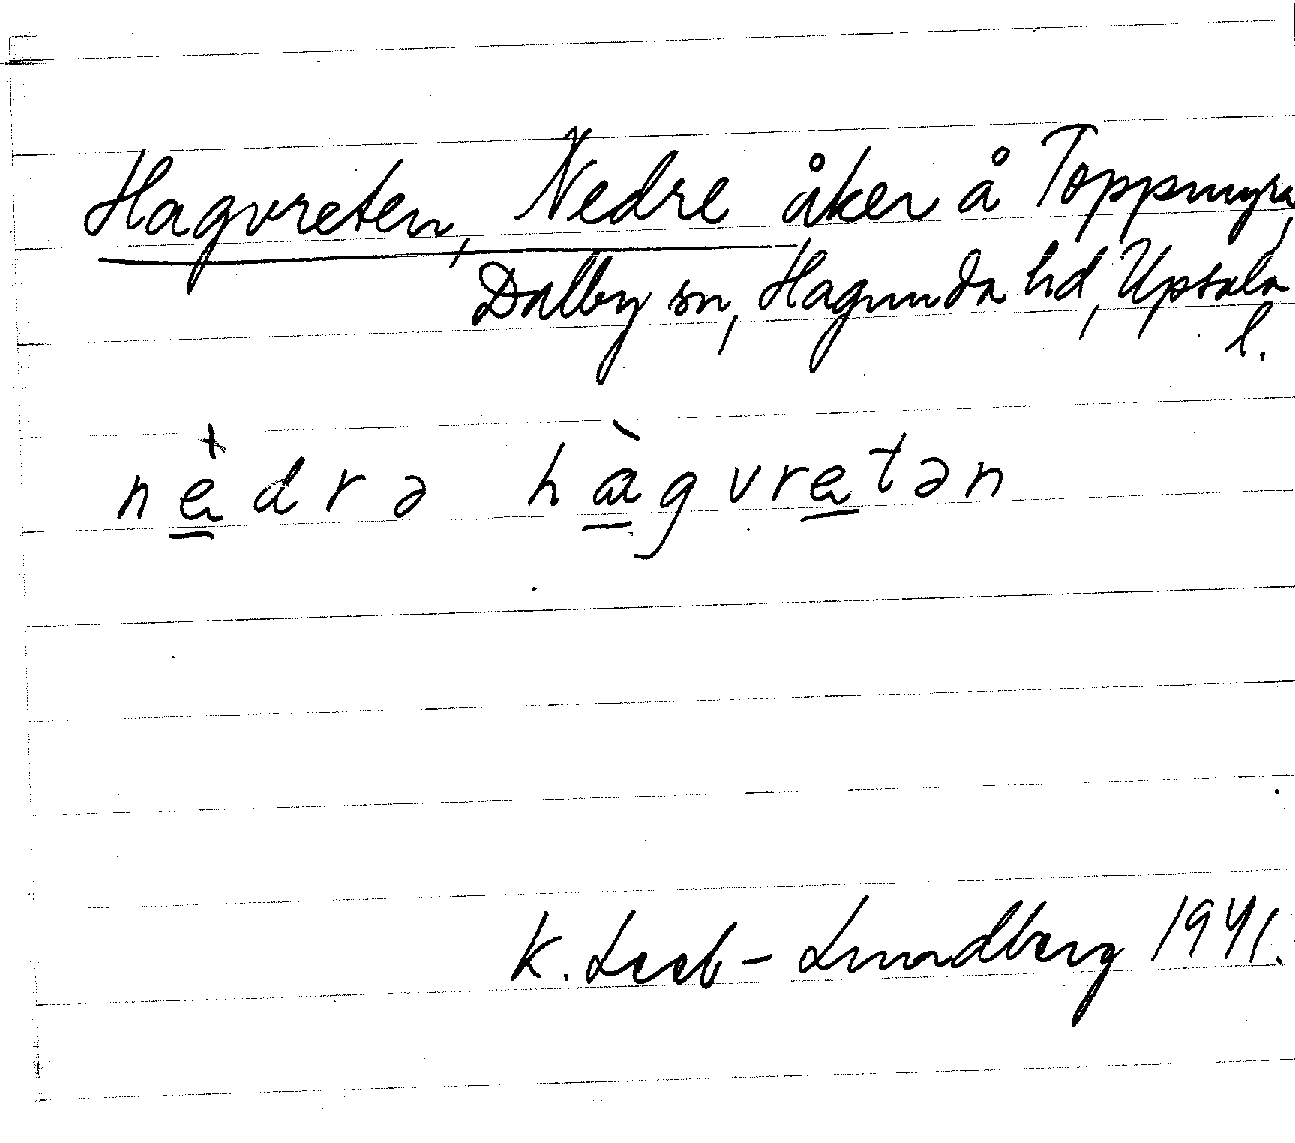 Hagvreten, Nedre åker å Toppmyra,
Dalby sn, Hagunda hd, Upsala
l.
nèdrə hàgvretən
K. Leeb-Lundberg 1941.